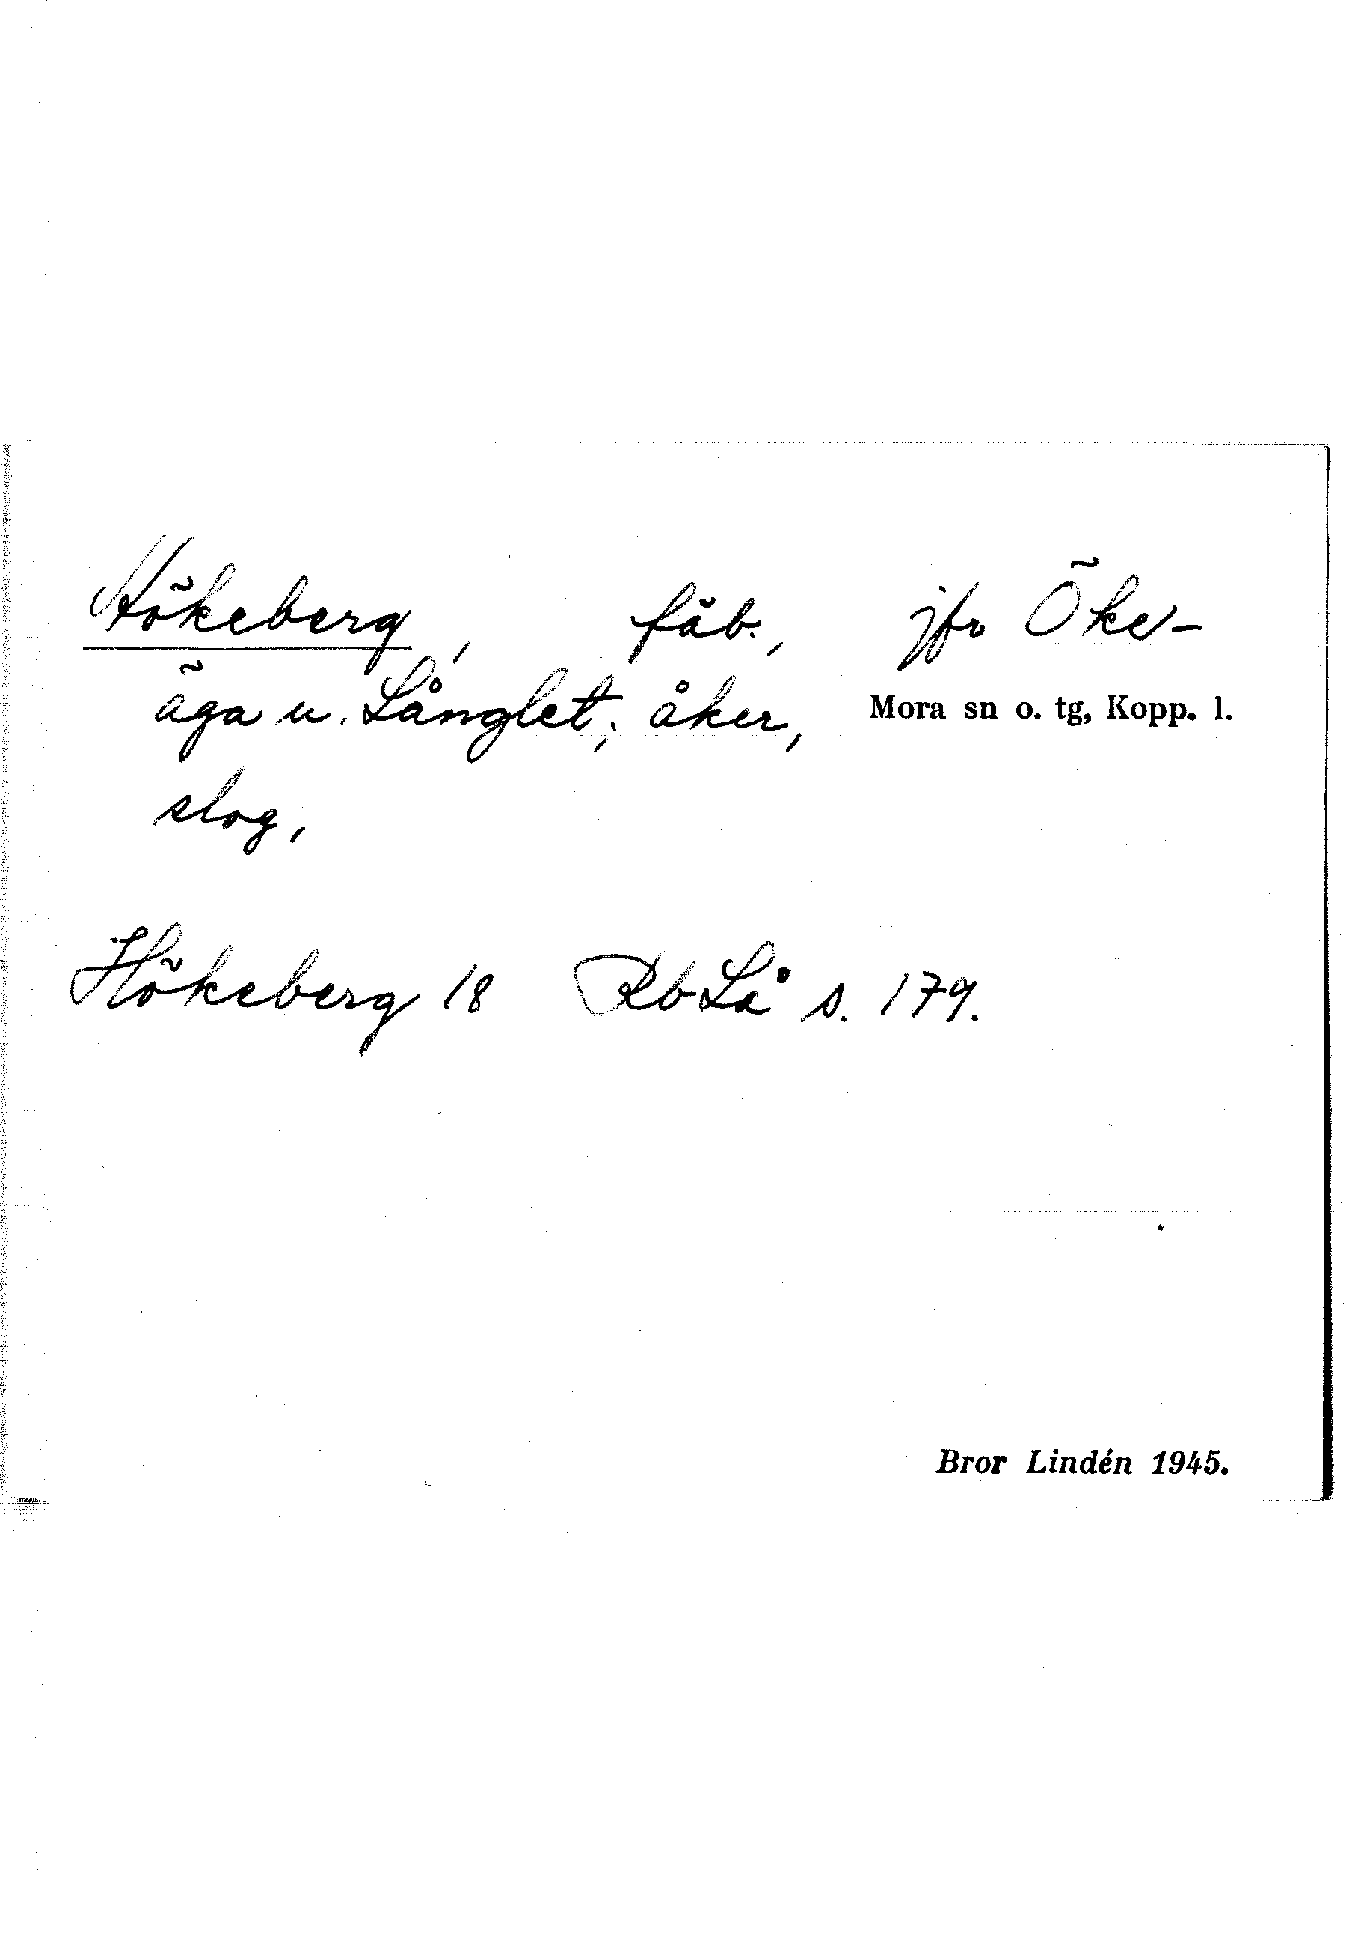 Hökeberg, fäb., jfr Öke-
äga u. Långlet; åker,
Mora sn o. tg, Kopp. l.
slog,
Hökeberg 18 Rb Lå s. 179.
Bror Lindén 1945.